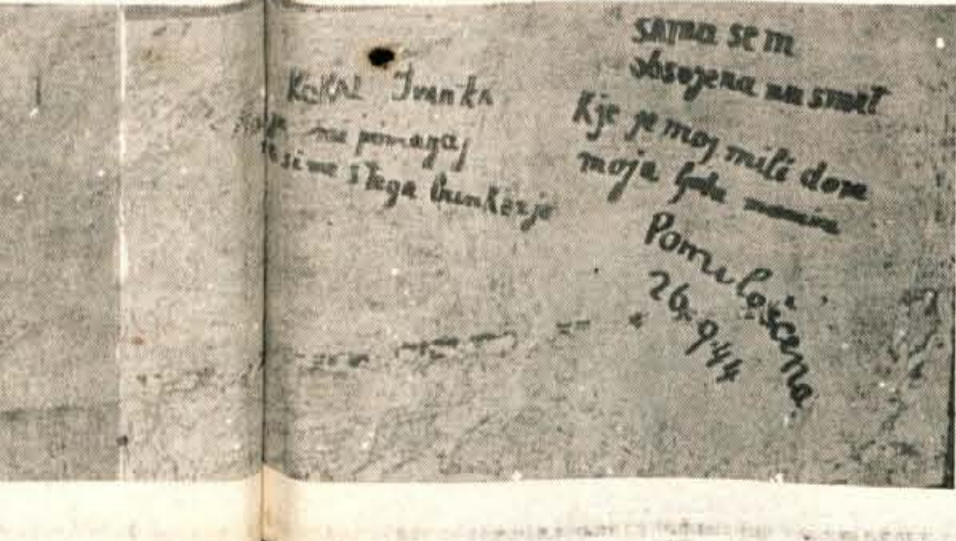 KOKAL Ivanka
mi pomagaj
s tega bunkerja
SAMA SEM
obsojena na smrt
Kje je moj mili dom
moja ljuba mama
Pomiloščena
26.9.44